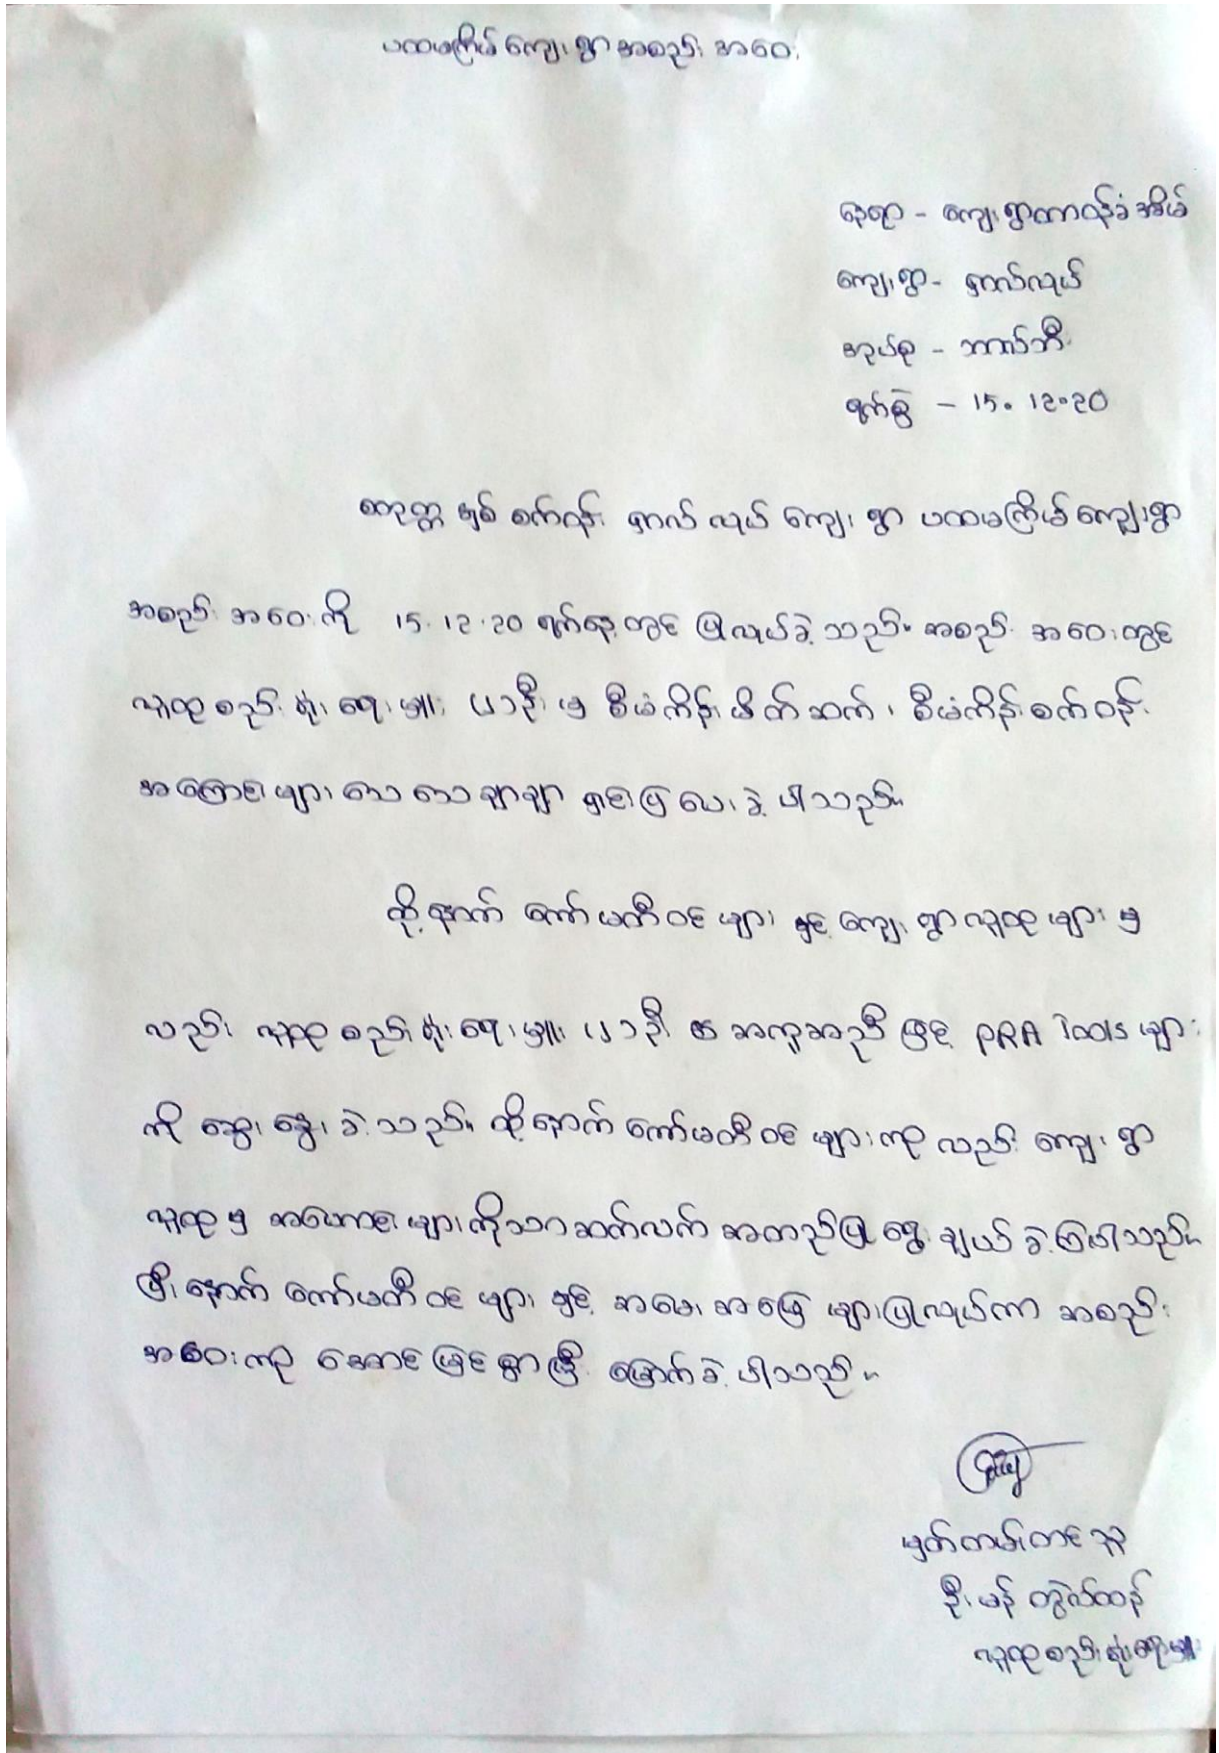 ပထမကြိမ် ကျေးရွာ အစည်း အဝေး
နေရာ - ကျေးရွာတာဝန်ခံ အိမ်
ကျေးရွာ - ဟလ်လုပ်
အုပ်စု -
ရက်စွဲ - 15.12.20
စတုတ္တ နှစ် စက်ဝန်း ဟလ်လုပ် ကျေးရွာ ပထမကြိမ် ကျေးရွာ
အစည်း အဝေးကို 15.12.20 ရက်နေ့တွင် ပြုလုပ်ခဲ့သည်။ အစည်း အဝေးတွင်
လူထုစည်းရုံးရေးမှူး ၂ ဦး မှ စီမံကိန်း မိတ်ဆက်၊ စီမံကိန်းစက်ဝန်း
အကြောင်းများ သေသေချာချာ ရှင်းပြပေးခဲ့ပါသည်။
ထို့နောက် ကော်မတီဝင်များ နှင့် ကျေးရွာလူထုများ မှ
လည်း လူထုစည်းရုံးရေးမှူး ၂ ဦး ၏ အကူအညီဖြင့် PRA Tools များ
ကို ဆွေးနွေးခဲ့သည်။ ထို့နောက် ကော်မတီဝင်များကု လည်း ကျေးရွာ
လူထုမှ အဟောင်းများကိုသာ ဆက်လက် အတည်ပြု ရွေးချယ်ခဲ့ကြပါသည်။
ပြီးနောက် ကော်မတီဝင်များ နှင့် အမေး အဖြေများပြုလုပ်ကာ အစည်း
အဝေးကု အောင်မြင်စွာပြီးမြောက်ခဲ့ပါသည်။
မှတ်တမ်းတင်သူ
ဦးမန်
လူထုစည်းရုံးရေးမှူး